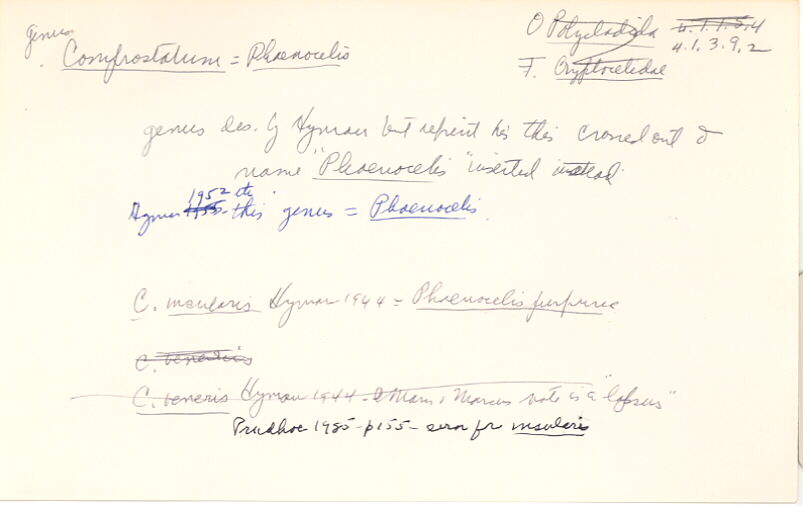 genus
Comprostatum = Phaenocelis
O Polycladida 4.1.1.5.4
4.1.3.9.2
F. Cryptocelidae
genus des. by Hyman but reprint has this crossed out &
name "Phaenocelis" inserted instead.
Hyman 1955 1952 this genus = Phaenocelis.
C. insularis Hyman 1944 = Phaenocelis purpurea
C. veneris
C. veneris Hyman 1944 - Marcus & Marcus note is a "lapsus"
Prudhoe 1985 - p155 - error for insularis